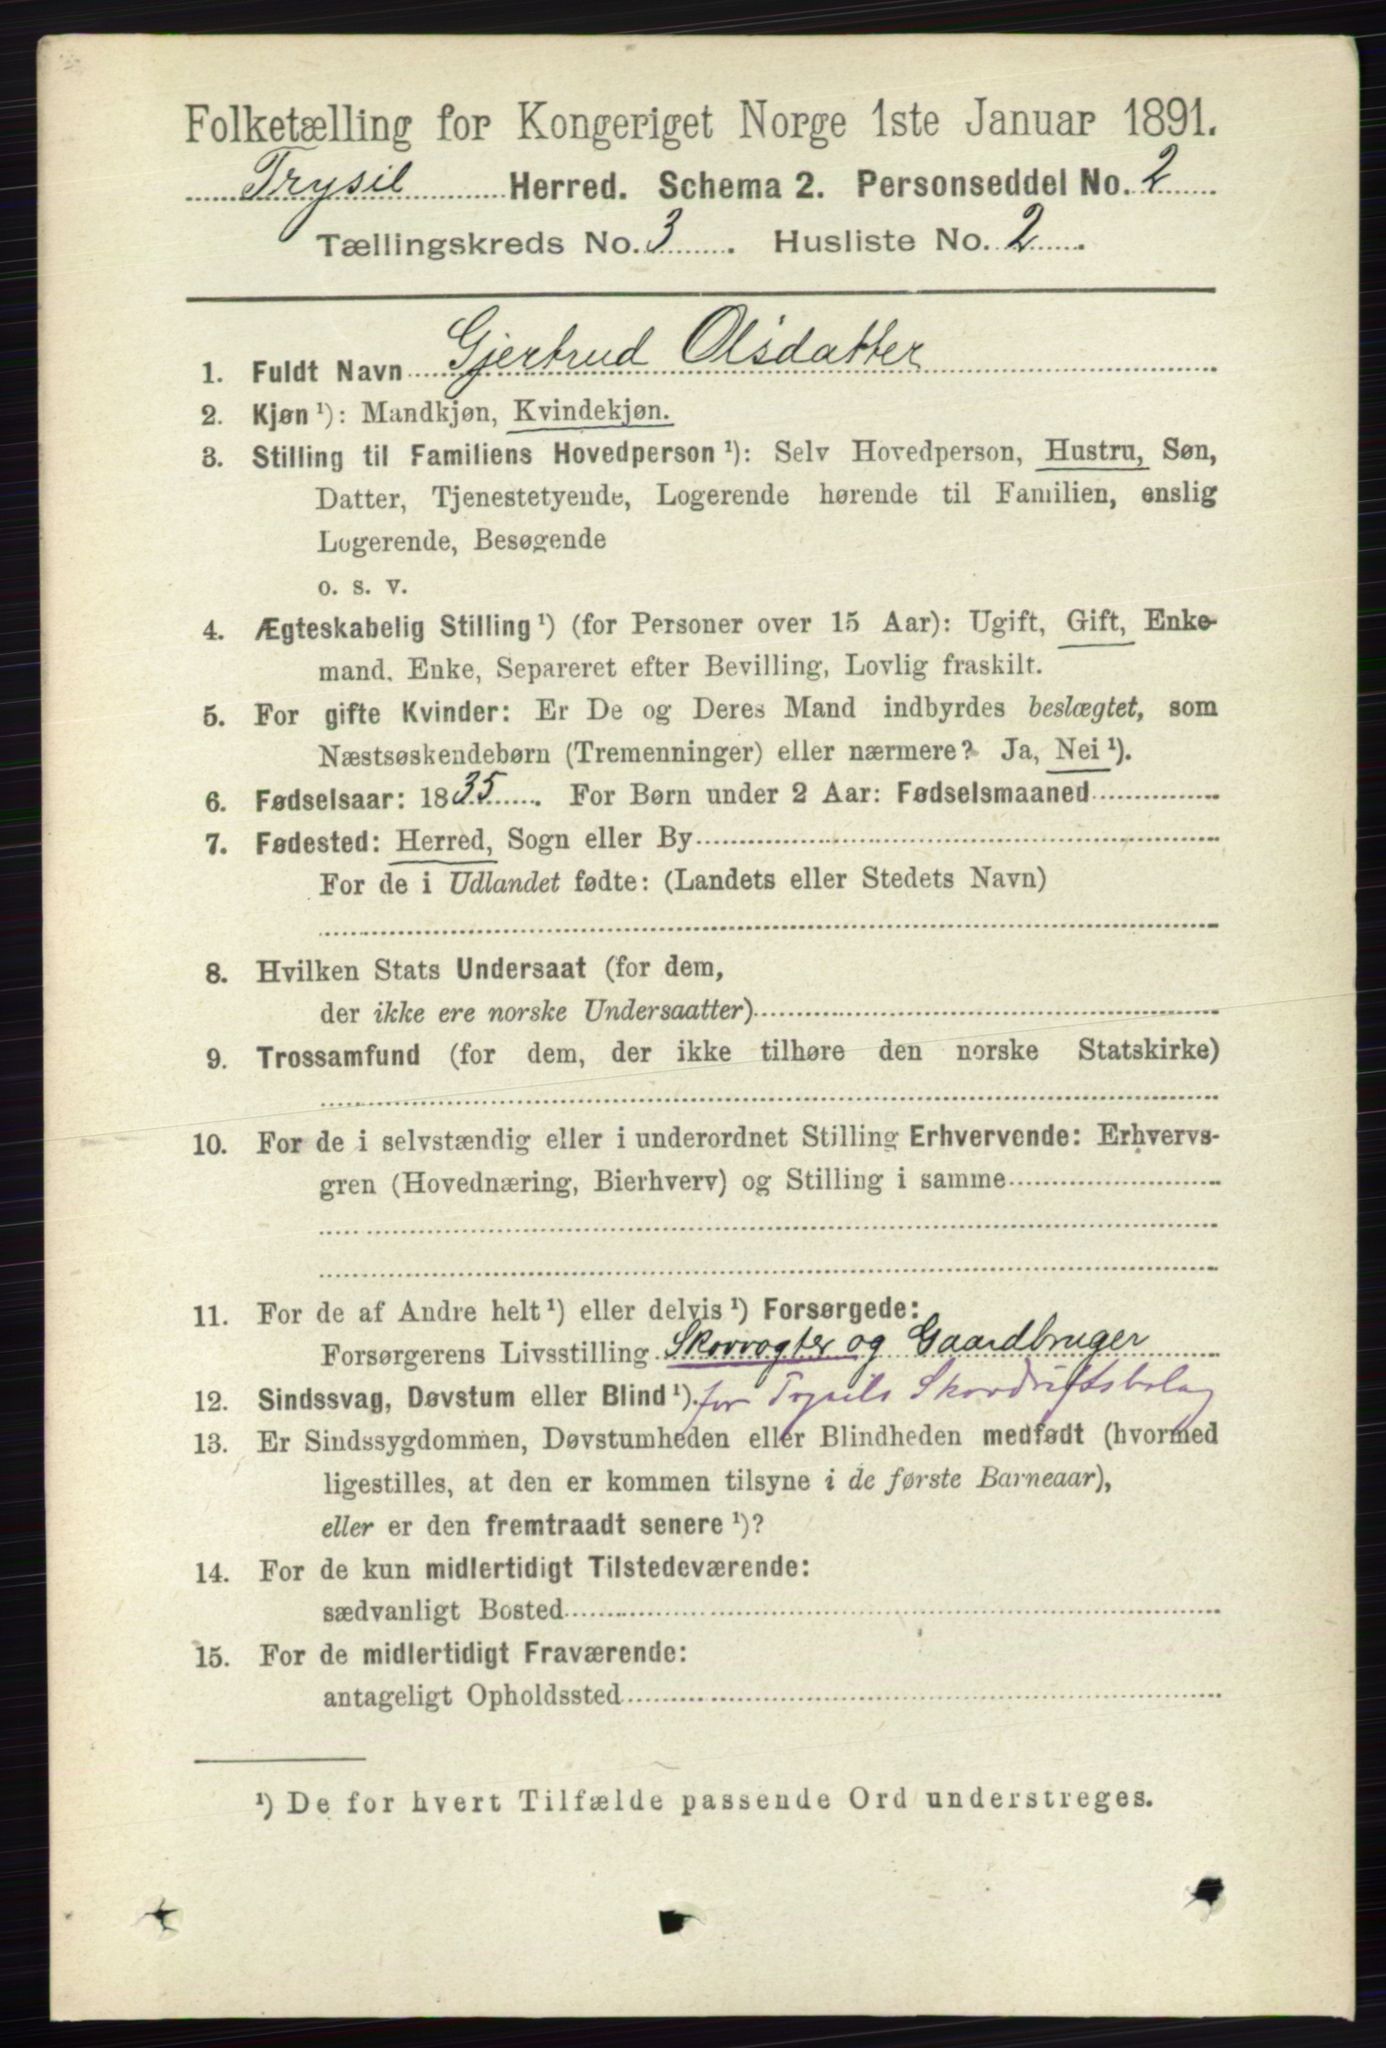 Folketælling for Kongeriget Norge 1ste Januar 1891.
Trysil Herred. Schema 2. Personseddel No. 2
Tællingskreds No. 3. Husliste No. 2.
1. Fuldt Navn Gjertrud Olsdatter
2. Kjøn ¹): Mandkjøn, Kvindekjøn.
3. Stilling til Familiens Hovedperson ¹): Selv Hovedperson, Hustru, Søn,
Datter, Tjenestetyende, Logerende hørende til Familien, enslig
Logerende, Besøgende
o. s. v.
4. Ægteskabelig Stilling ¹) (for Personer over 15 Aar): Ugift, Gift, Enke-
mand, Enke, Separeret efter Bevilling, Lovlig fraskilt.
5. For gifte Kvinder: Er De og Deres Mand indbyrdes beslægtet, som
Næstsøskendebørn (Tremenninger) eller nærmere? Ja, Nei ¹).
6. Fødselsaar: 1835. For Børn under 2 Aar: Fødselsmaaned
7. Fødested: Herred, Sogn eller By
For de i Udlandet fødte: (Landets eller Stedets Navn)
8. Hvilken Stats Undersaat (for dem,
der ikke ere norske Undersaatter)
9. Trossamfund (for dem, der ikke tilhøre den norske Statskirke)
10. For de i selvstændig eller i underordnet Stilling Erhvervende: Erhvervs-
gren (Hovednæring, Bierhverv) og Stilling i samme
11. For de af Andre helt ¹) eller delvis ¹) Forsørgede:
Forsørgerens Livsstilling Skovvogter og Gaardbruger
12. Sindssvag, Døvstum eller Blind ¹). for Trysils Skovdriftsbolag
13. Er Sindssygdommen, Døvstumheden eller Blindheden medfødt (hvormed
ligestilles, at den er kommen tilsyne i de første Barneaar),
eller er den fremtraadt senere ¹)?
14. For de kun midlertidigt Tilstedeværende:
sædvanligt Bosted
15. For de midlertidigt Fraværende:
antageligt Opholdssted
¹) De for hvert Tilfælde passende Ord understreges.